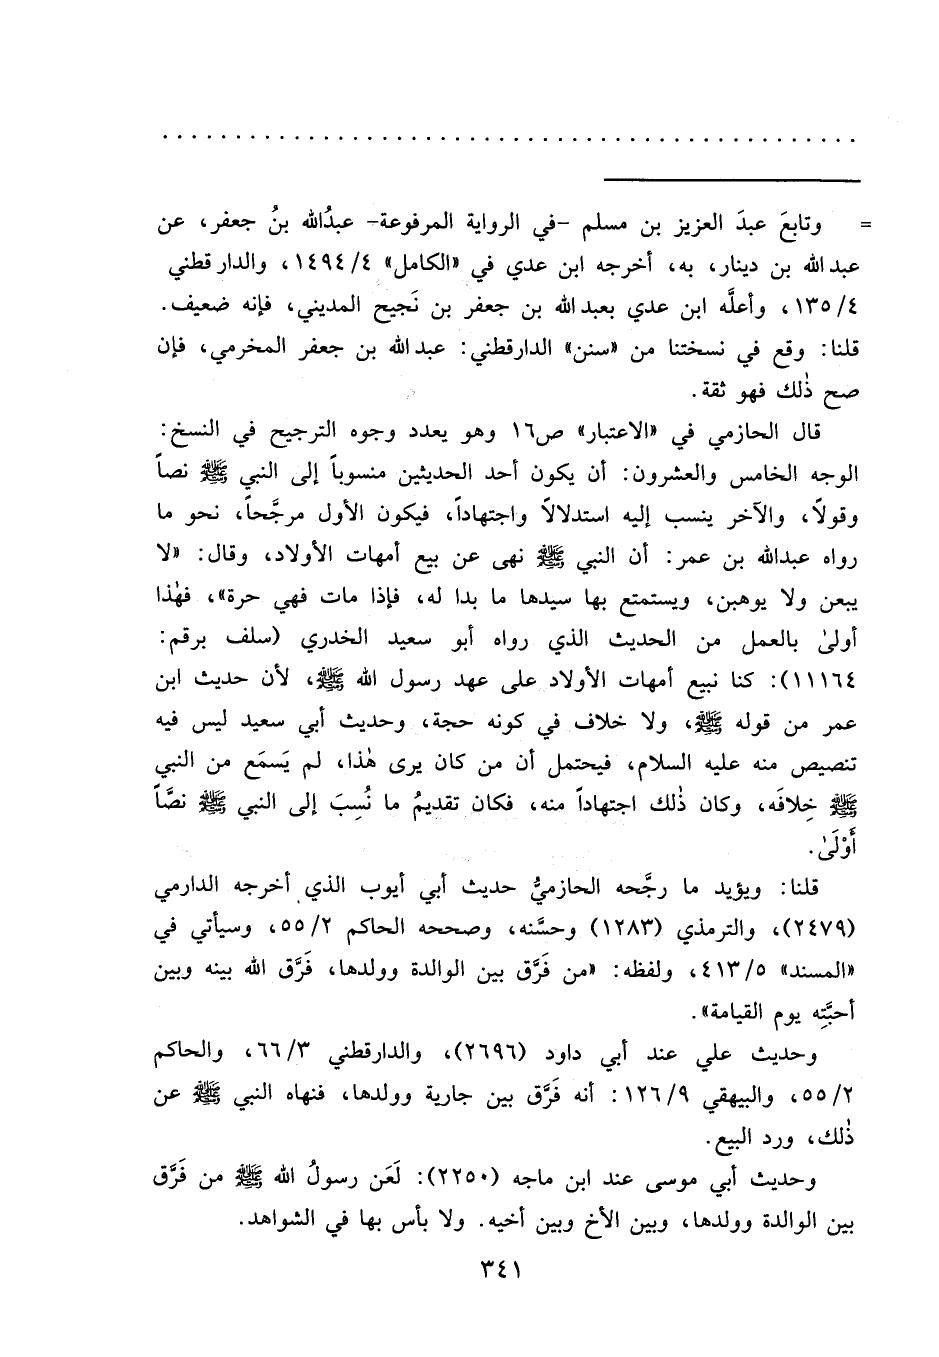 = وتابعَ عبدَ العزيز بن مسلم -في الرواية المرفوعة- عبدُالله بنُ جعفر، عن
عبدالله بن دينار، به، أخرجه ابن عدي في «الكامل» ١٤٩٤/٤، والدارقطني
١٣٥/٤، وأعلَّه ابن عدي بعبدالله بن جعفر بن نَجيح المديني، فإنه ضعيف.
قلنا: وقع في نسختنا من «سنن» الدارقطني: عبدالله بن جعفر المخرمي، فإن
صح ذٰلك فهو ثقة.
قال الحازمي في «الاعتبار» ص١٦ وهو يعدد وجوه الترجيح في النسخ:
الوجه الخامس والعشرون: أن يكون أحد الحديثين منسوباً إلى النبي ﷺ نصاً
وقولاً، والآخر ينسب إليه استدلالاً واجتهاداً، فيكون الأول مرجَّحاً، نحو ما
رواه عبدالله بن عمر: أن النبي ﷺ نهى عن بيع أمهات الأولاد، وقال: «لا
يبعن ولا يوهبن، ويستمتع بها سيدها ما بدا له، فإذا مات فهي حرة»، فهٰذا
أولىٰ بالعمل من الحديث الذي رواه أبو سعيد الخدري (سلف برقم:
١١١٦٤): كنا نبيع أمهات الأولاد على عهد رسول الله ﷺ، لأن حديث ابن
عمر من قوله ﷺ، ولا خلاف في كونه حجة، وحديث أبي سعيد ليس فيه
تنصيص منه عليه السلام، فيحتمل أن من كان يرى هٰذا، لم يَسمَع من النبي
ﷺ خِلافَه، وكان ذٰلك اجتهاداً منه، فكان تقديمُ ما نُسِبَ إلى النبي ﷺ نصَّاً
أَوْلَىٰ.
قلنا: ويؤيد ما رجَّحه الحازميُّ حديث أبي أيوب الذي أخرجه الدارمي
(٢٤٧٩)، والترمذي (١٢٨٣) وحسَّنه، وصححه الحاكم ٥٥/٢، وسيأتي في
«المسند» ٤١٣/٥، ولفظه: «من فَرَّق بين الوالدة وولدها، فَرَّق الله بينه وبين
أحبَّتِه يوم القيامة».
وحديث علي عند أبي داود (٢٦٩٦)، والدارقطني ٦٦/٣، والحاكم
٥٥/٢، والبيهقي ١٢٦/٩: أنه فَرَّق بين جارية وولدها، فنهاه النبي ﷺ عن
ذٰلك، ورد البيع.
وحديث أبي موسى عند ابن ماجه (٢٢٥٠): لَعَن رسولُ الله ﷺ من فَرَّق
بين الوالدة وولدها، وبين الأخ وبين أخيه. ولا بأس بها في الشواهد.
٣٤١